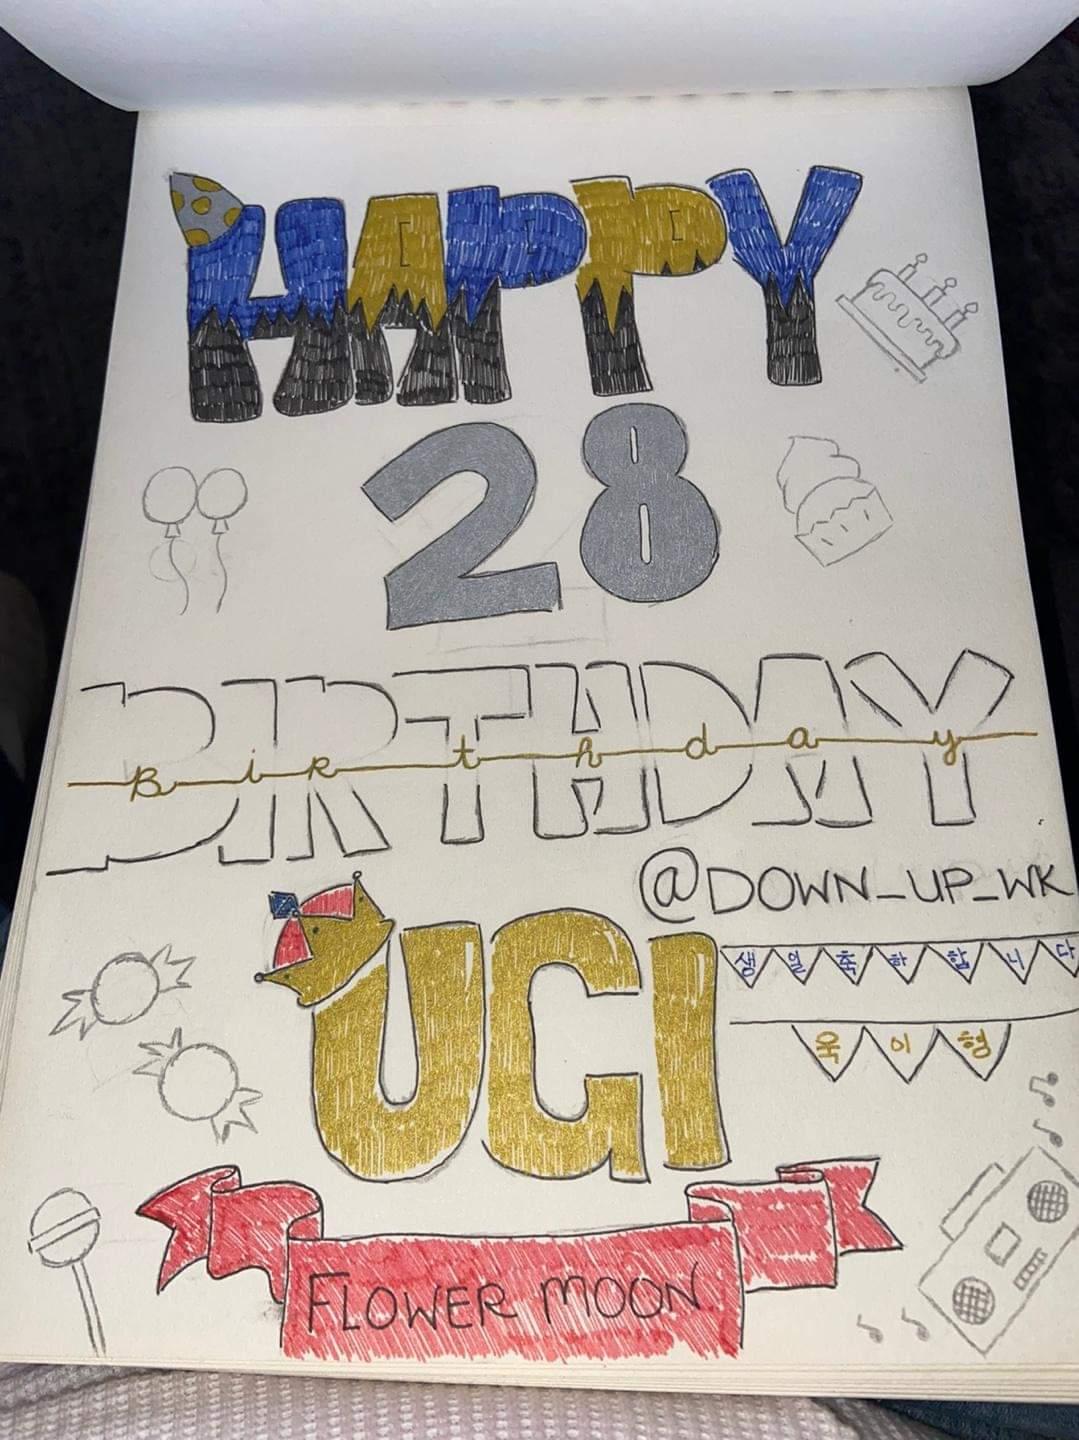 HAPPY
28
BIRTHDAY
Birthday
@DOWN_UP_WK
UGI
생일축하합니다
욱이형
FLOWER MOON